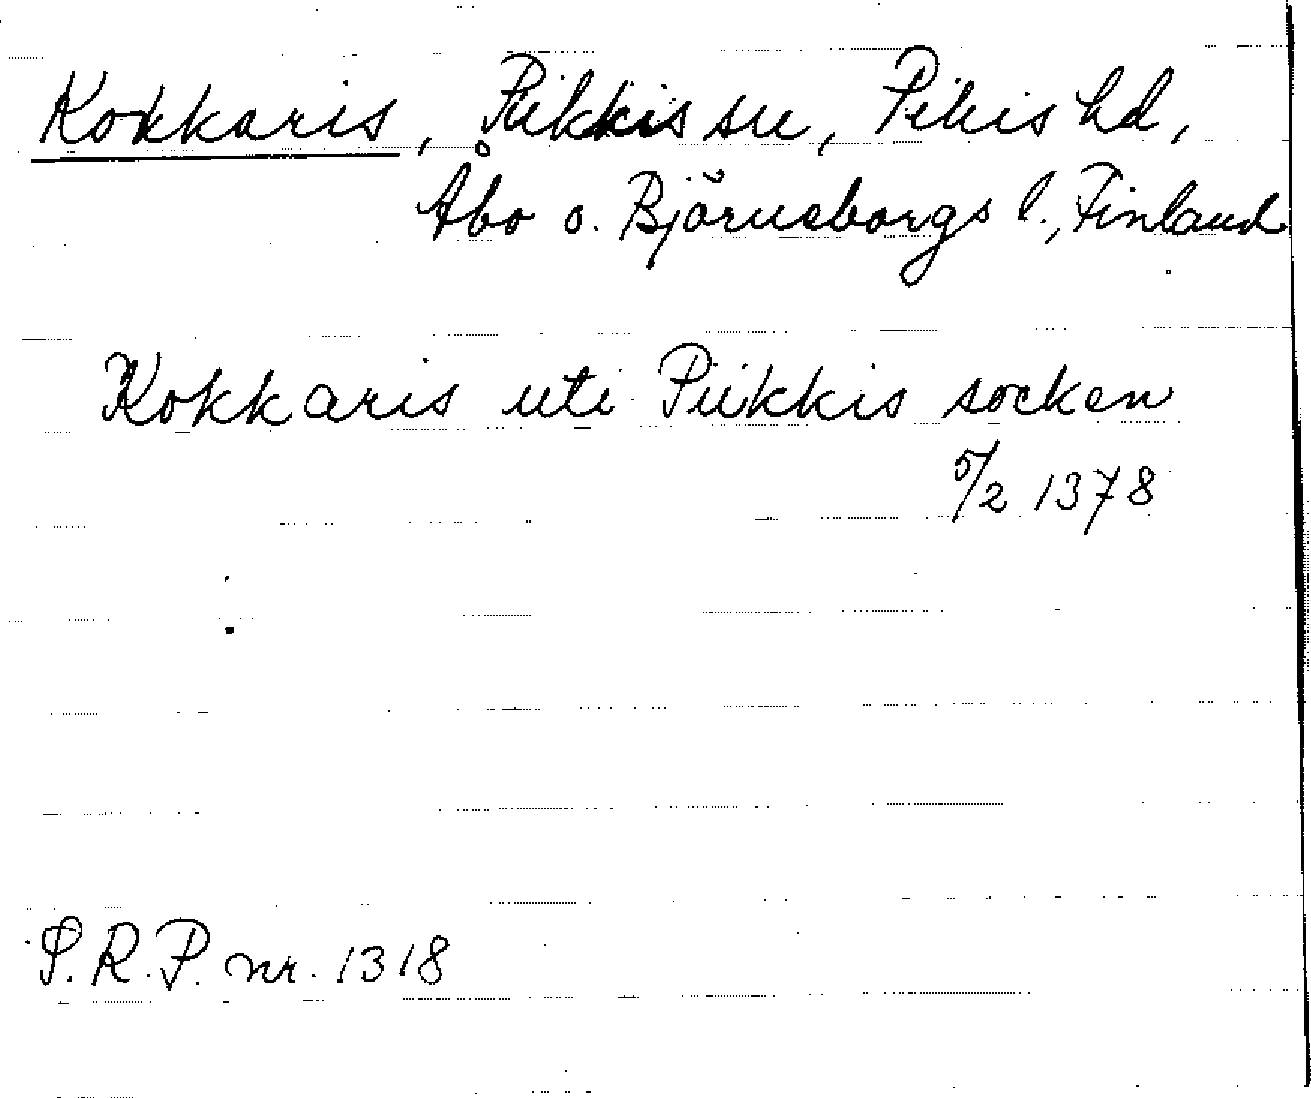 Kokkaris, Piikkis sn, Pikis hd,
Åbo o. Björneborgs l., Finland
Kokkaris uti Piikkis socken
5/2 1378
S.R.P. nr. 1318